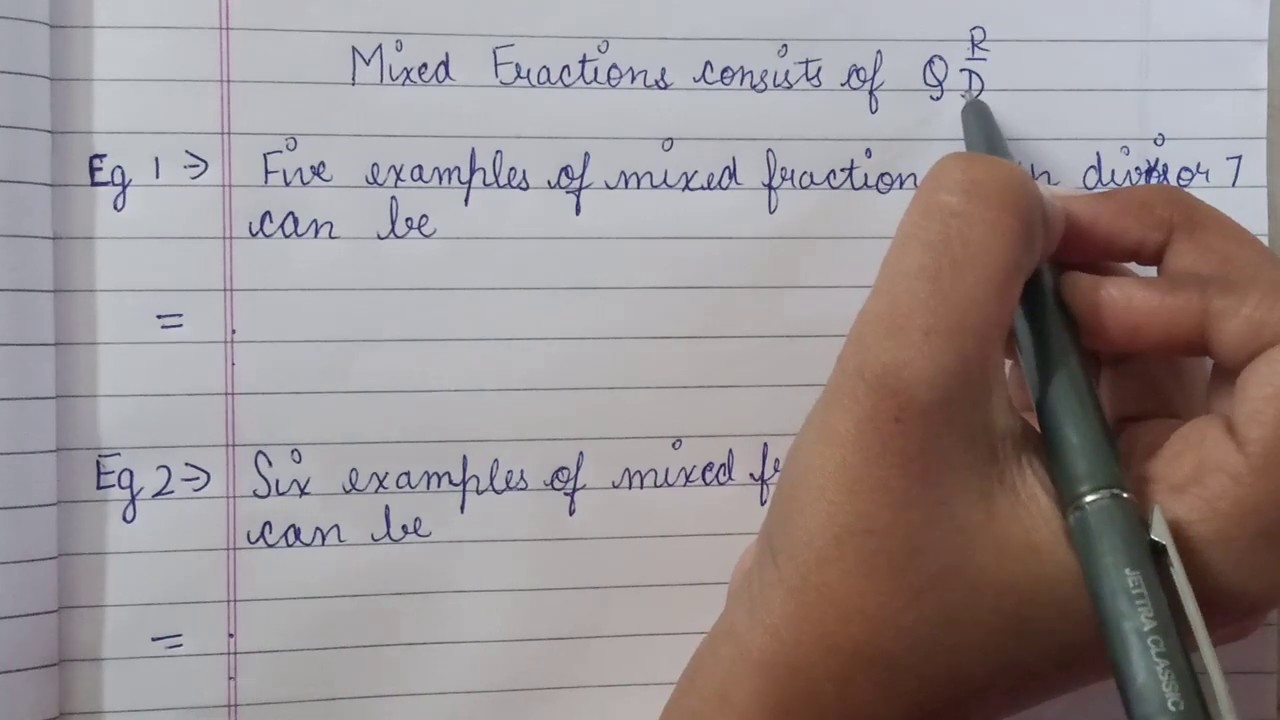 Mixed Fractions consists of Q R/D
Eg 1 ⇒ Five examples of mixed fraction divisor 7
can be
=
Eg 2 ⇒ Six examples of mixed
can be
=
JETTRA CLASSIC